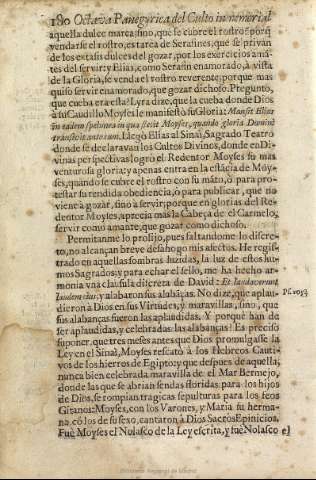 180 Octava Panegyrica del Culto in memorial
aquella dulce marea; sino, que se cubre el rostro: porq̃
vendarse el rostro, es tarea de Serafines, que se privan
de los extasis dulces del gozar, por los exercicios amātes
del servir: y Elias, como Serafin enamorado, à vista
de la Gloria, se venda el rostro reverente, porque mas
quiso servir enamorado, que gozar dichoso. Pregunto,
que cueba era esta? Lyra dize, que la cueba donde Dios
à su Caudillo Moyses le manifestò su Gloria: Mansit Elias
in eadem spelunca in qua stetit Moyses, quando gloria Domini
transivit ante eum. Llegò Elias al Sinaì, Sagrado Teatro
donde se declaravan los Cultos Divinos, donde en Divinas
perspectivas logrò el Redentor Moyses su mas
venturosa gloria: y apenas entra en la estācia de Moyses,
quando se cubre el rostro con su māto, ò para protestar
su rendida obediencia, ò para publicar, que no
viene à gozar, sino à servir; porque en glorias del Redentor
Moyses, aprecia mas la Cabeça de el Carmelo,
servir como amante, que gozar como dichoso.
Permitanme lo prolijo, pues faltandome lo discreto,
no alcançan breve desahogo mis afectos. He registrado
en aquellas sombras luzidas, la luz de estos humos
Sagrados; y para echar el sello, me ha hecho armonia
vna clausula discreta de David: Et laudaverunt
laudem eius; y alabaron sus alabāças. No dize, que aplaudieron
à Dios en sus Virtudes, y maravillas, sino, que
sus alabanças fueron las aplaudidas. Y porquè han de
ser aplaudidas, y celebradas las alabanças? Es preciso
suponer, que tres meses antes que Dios promulgasse la
Ley en el Sinaì, Moyses rescatò à los Hebreos Cautivos
de los hierros de Egipto; y que despues de aquella,
nunca bien celebrada maravilla de el Mar Bermejo,
donde las que se abrian sendas floridas para los hijos
de Dios, se rompian tragicas sepulturas para los feos
Gitanos: Moyses, con los Varones, y Maria su hermana,
cō los de su sexo, cantaron à Dios Sacros Epinicios.
Fuè Moyses el Nolasco de la Ley escrita, y fuè Nolasco el